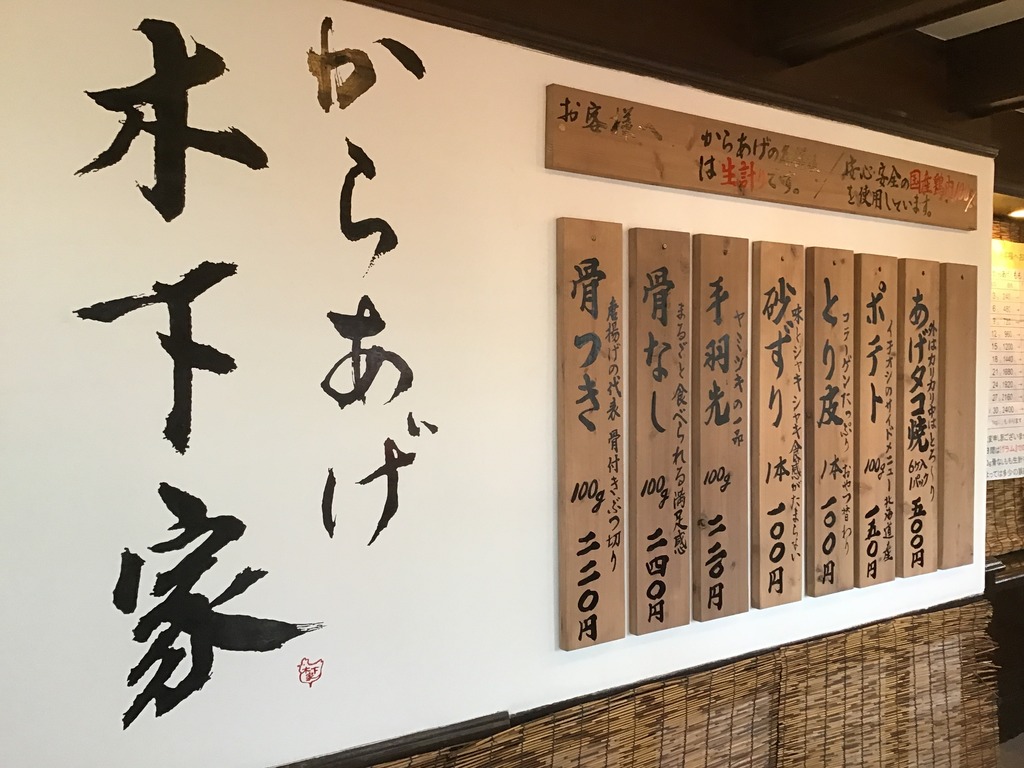 からあげ
木下家
お客様へ
からあげの
は生計りです。
安心安全の国産鶏肉
を使用しています。
骨つき
唐揚げの代表 骨付きぶつ切り
100g 二二〇円
骨なし
まるごと食べられる満足感
100g 二四〇円
手羽先
ヤミツキの一品
100g 二二〇円
砂ずり
味とシャキシャキ食感がたまらない
1本 一〇〇円
とり皮
コラーゲンたっぷり おやつ替わり
1本 一〇〇円
ポテト
イチオシのサイドメニュー 北海道産
100g 一五〇円
あげタコ焼
外はカリカリ中はとろ〜り
6ヶ入
1パック
五〇〇円